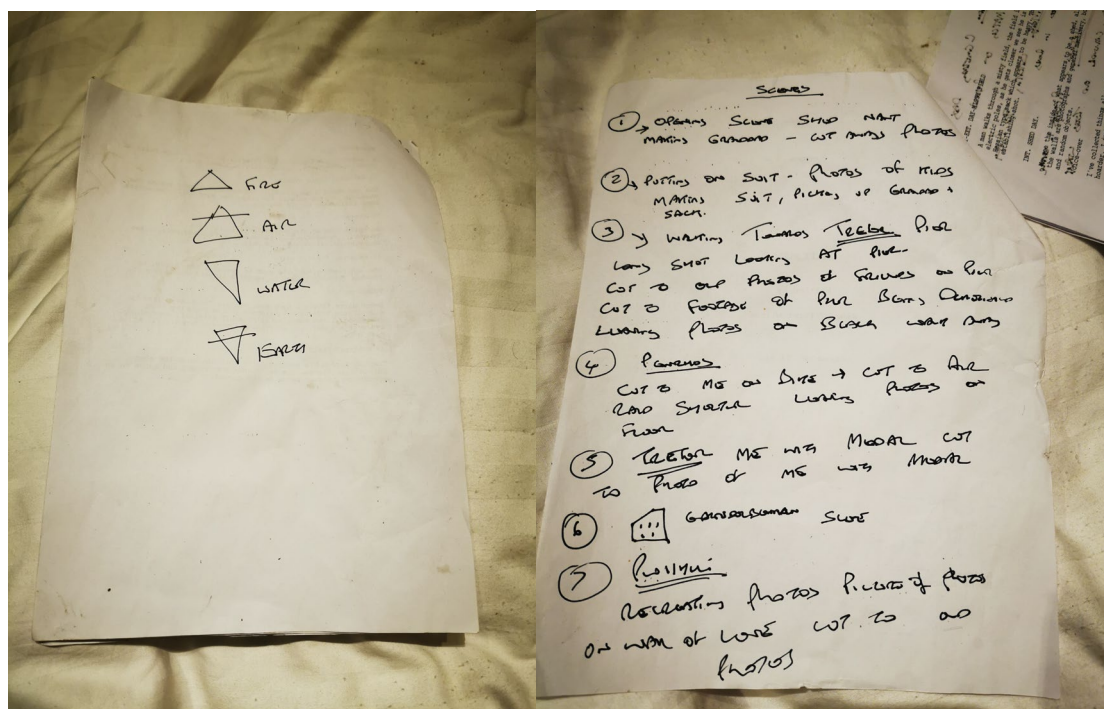 FIRE
AIR
WATER
EARTH
SCENES
1 OPENING SCENE SHED NANT
MAKING GRANDAD - CUT AWAYS PHOTOS
2 PUTTING ON SUIT - PHOTOS OF KIDS
MAKING SUIT, PICKING UP GRANDAD +
SACK.
3 WALKING TOWARDS TREFOR PIER
LONG SHOT LOOKING AT PIER.
CUT TO OLD PHOTOS OF FRIENDS ON PIER
CUT TO FOOTAGE OF PIER BEING DEMOLISHED
LEAVING PHOTOS ON BEACH WALK AWAY
4
CUT TO ME ON BIKE → CUT TO AIR
RAID SHELTER LEAVING PHOTOS ON
FLOOR
5 TREFOR ME WITH MEDAL CUT
TO PHOTO OF ME WITH MEDAL
6 SCENE
7 PWLLHELI
RECREATING PHOTOS PICTURE of PHOTOS
ON WALL OF LOVE CUT TO OLD
PHOTOS
A man walks through a misty field, the field
INT. SHED DAY.
and random objects.